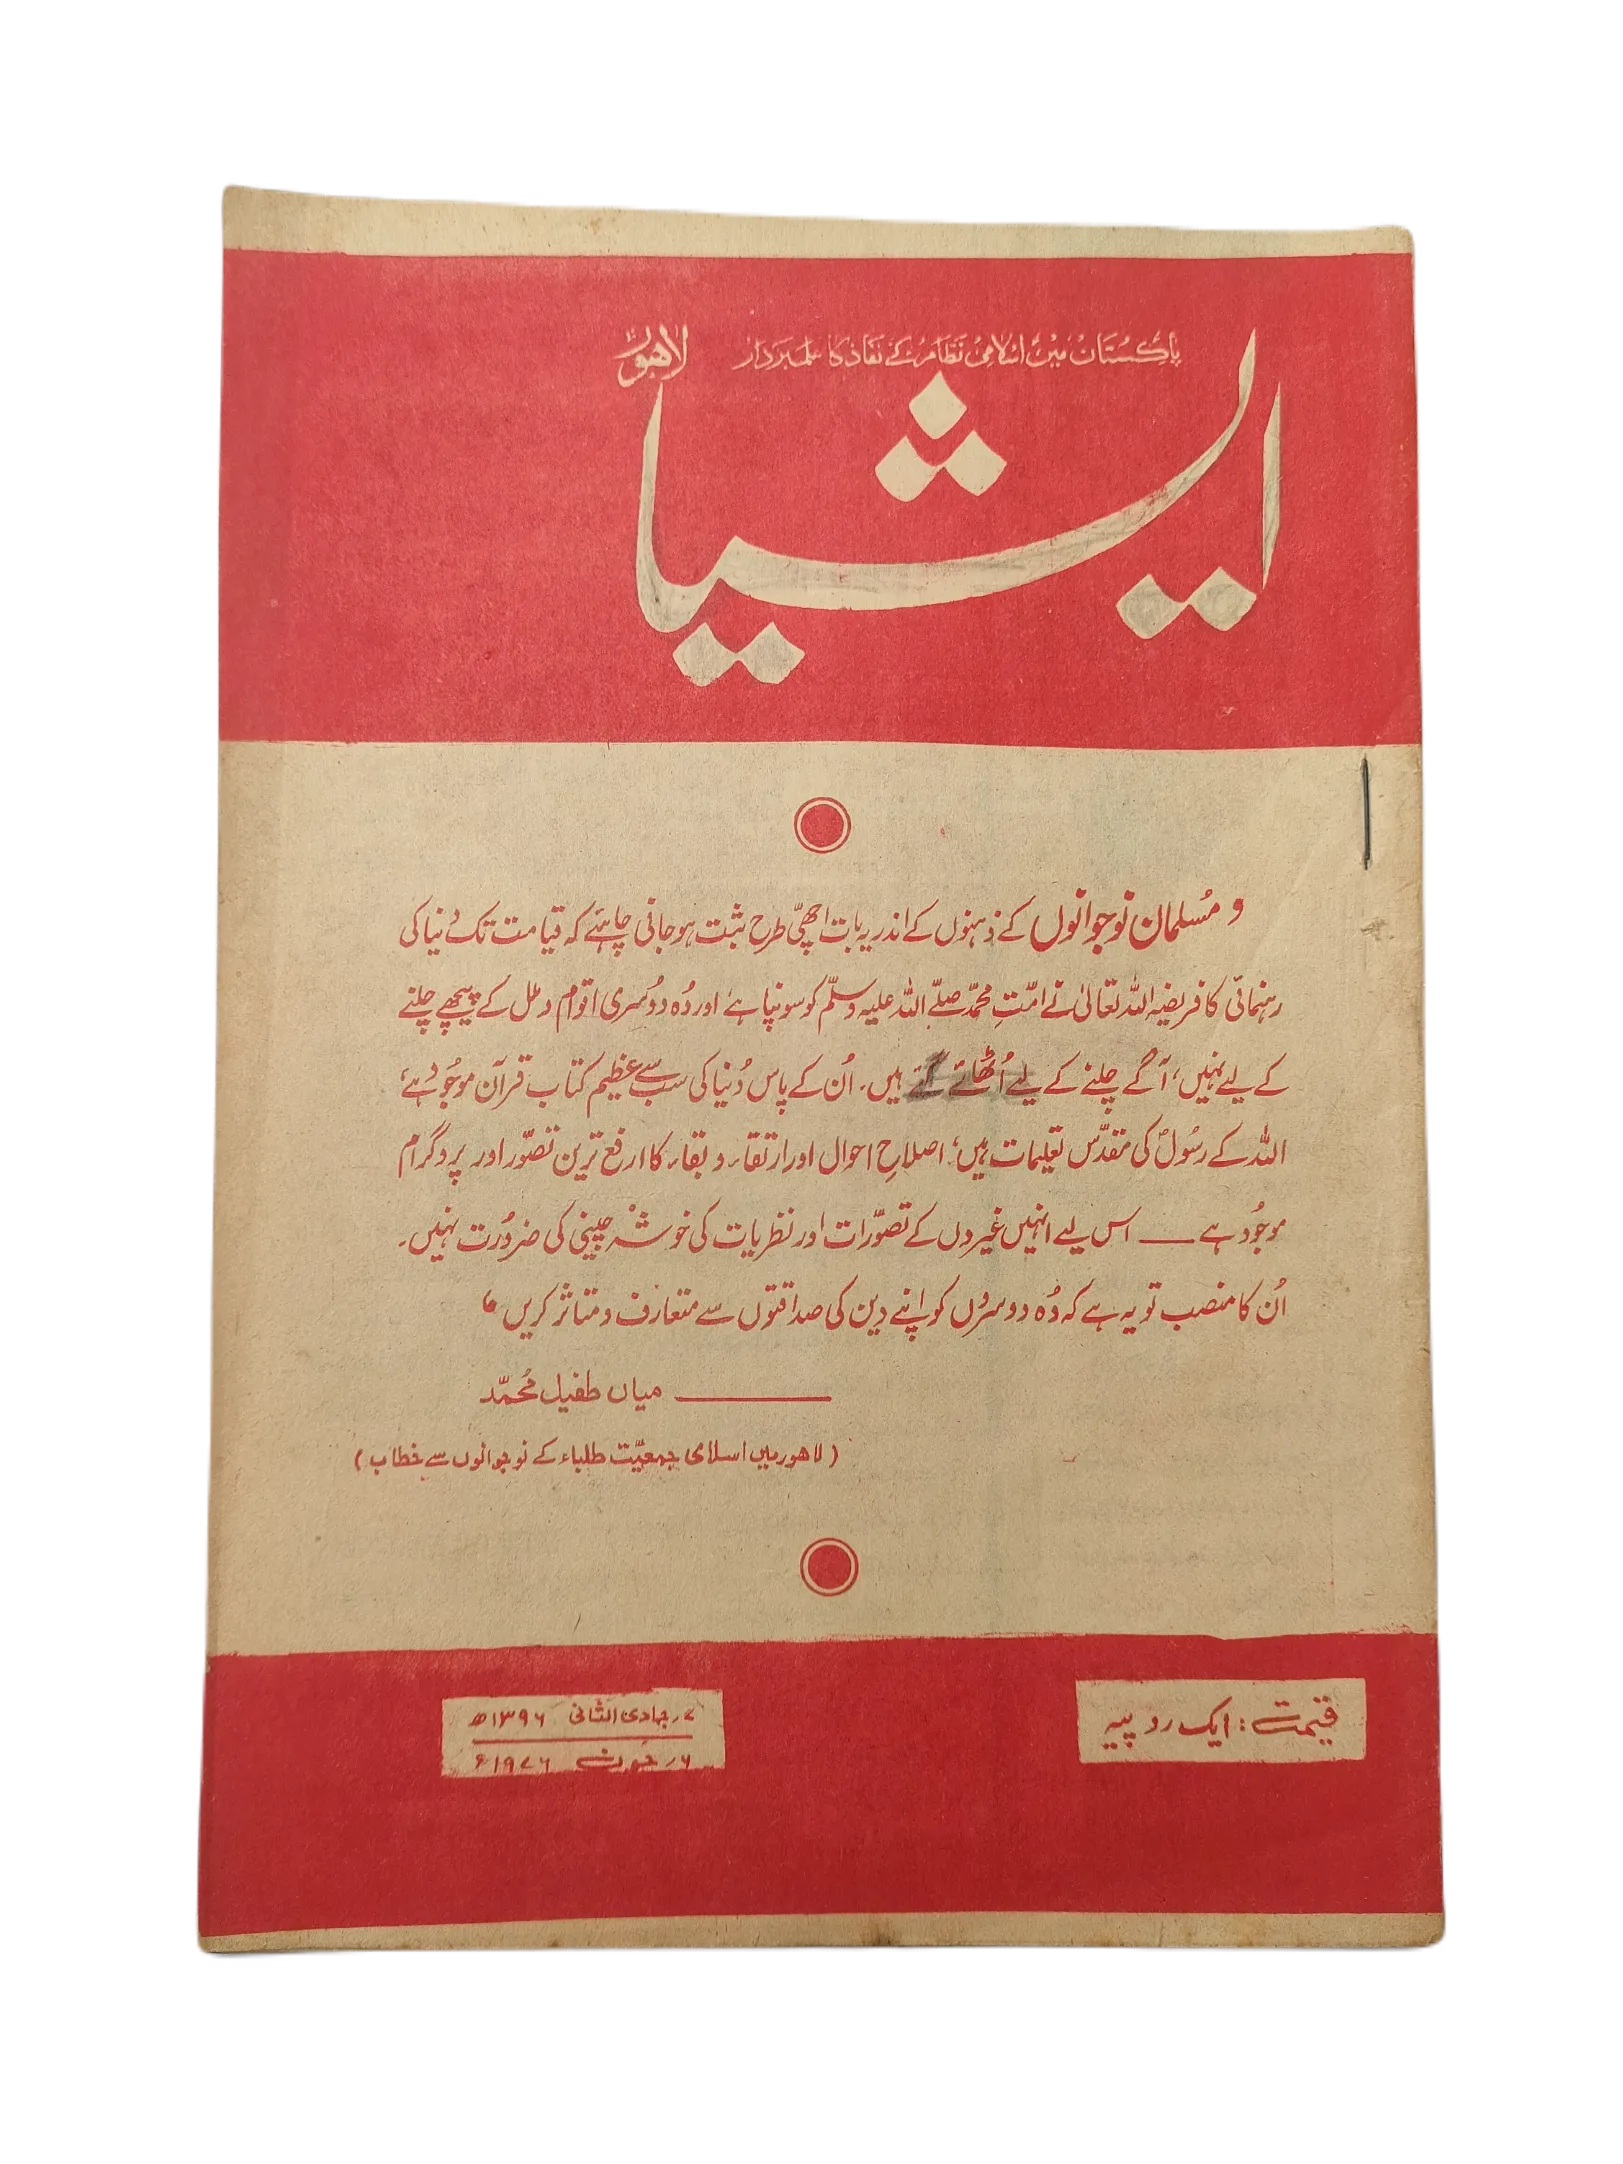 پاکستان میں اسلامی نظام کے نفاذ کا علمبردار
لاهور
ایشیا
مُسلمان نوجوانوں کے ذہنوں کے اندر یہ بات اچھی طرح ثبت ہو جانی چاہئے کہ قیامت تک دنیا کی
رہنمائی کا فریضہ اللہ تعالیٰ نے امّتِ محمّد صلے اللہ علیہ وسلّم کو سونپا ہے اور وُہ دوُسری اقوام و ملل کے پیچھے چلنے
کے لیے نہیں، آگے چلنے کے لیے اُٹھائے گئے ہیں۔ اُن کے پاس دُنیا کی سب سے عظیم کتاب قرآن موجوُد ہے،
اللہ کے رسُولؐ کی مقدّس تعلیمات ہیں، اصلاحِ احوال اور ارتقاء و بقاء کا ارفع ترین تصوّر اور پروگرام
موجُود ہے —— اس لیے انہیں غیروں کے تصوّرات اور نظریات کی خوشہ چینی کی ضروُرت نہیں۔
اُن کا منصب تو یہ ہے کہ وُہ دوسروُں کو اپنے دین کی صداقتوں سے متعارف و متاثر کریں“
—— میاں طفیل مُحمّد
(لاهور میں اسلامی جمعیّت طلباء کے نوجوانوں سے خطاب)
قیمت: ایک روپیہ
۷؍ جمادی الثانی ۱۳۹۶ھ
۶؍ جُون ۱۹۷۶ء